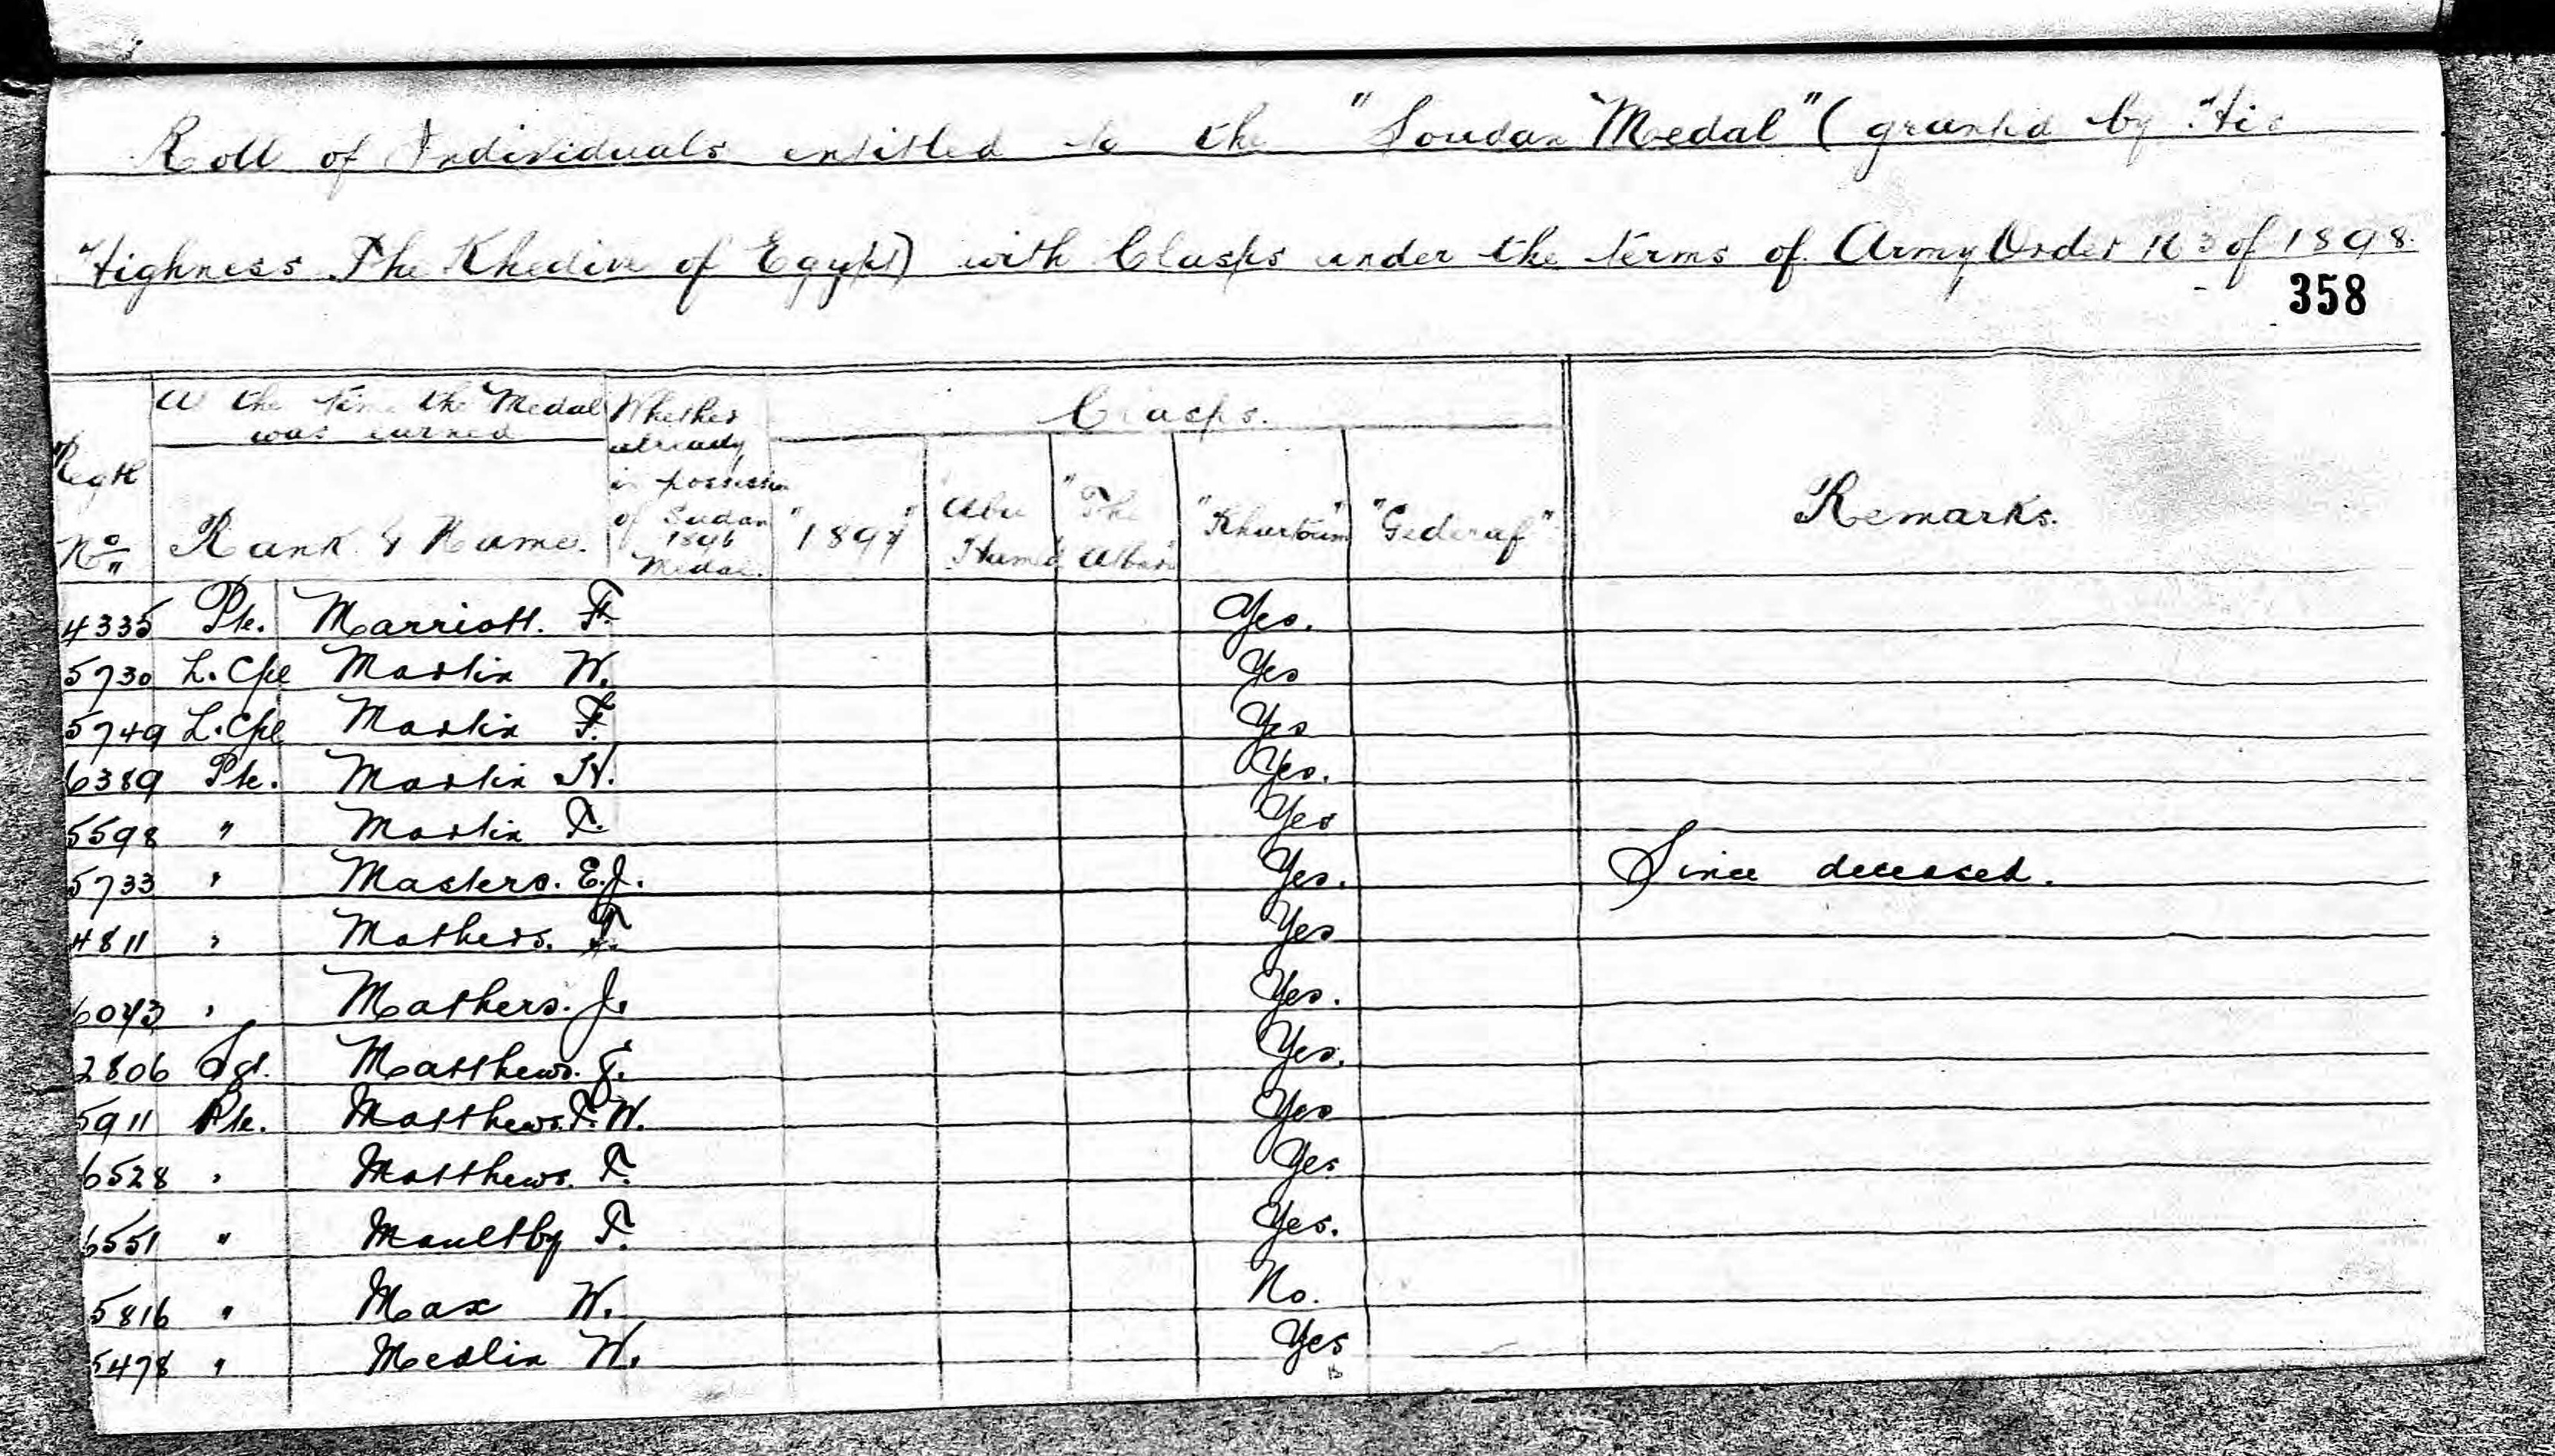 Roll of Individuals entitled to the "Soudan Medal" (granted by His
Highness The Khedive of Egypt) with Clasps under the terms of Army Order of 1898.
358
At the time the Medal was earned
Whether already in possession of Sudan 1896 Medal.
Clasps.
Regtl No
Rank & Name.
"1897" "Abu Hamed "The "Khartoum" "Gederaf"
Remarks.
4335 Pte. Marriott. F. Yes.
5730 L. Cpl Martin W. Yes
5749 L. Cpl Martin F. Yes
6389 Pte. Martin H. Yes.
5598 " Martin T. Yes
5733 " Masters. E.J. Yes. Since deceased.
4811 " Mathers. Yes
" Mathers. J. Yes.
2806 Sgt. Matthews. Yes.
5911 Pte. Matthews. T. W. Yes
6528 " Matthews. T. Yes
6551 " Maultby T. Yes.
5816 " Max W. No.
5478 " Medlin W. Yes